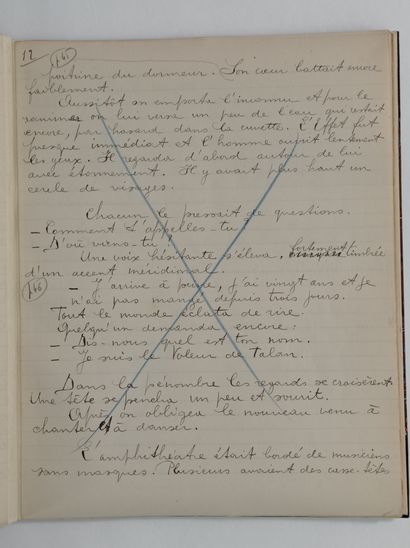 12 165
poitrine du dormeur. Son cœur battait encore
faiblement.
Aussitôt on emporta l'inconnu et pour le
ranimer on lui versa un peu de l'eau qui restait
encore, par hasard dans la cuvette. L'effet fut
presque immédiat et l'homme ouvrit lentement
les yeux. Il regarda d'abord autour de lui
avec étonnement. Il y avait plus haut un
cercle de visages.
Chacun le pressait de questions.
— Comment t'appelles-tu?
— D'où viens-tu?
Une voix hésitante s'éleva, fortement timbrée
d'un accent méridional.
166
— J'arrive à peine, j'ai vingt ans et je
n'ai pas mangé depuis trois jours.
Tout le monde éclata de rire.
Quelqu'un demanda encore:
— Dis-nous quel est ton nom.
— Je suis le Voleur de Talan.
Dans la pénombre les regards se croisèrent
Une tête se pencha un peu et sourit.
Après on obligea le nouveau venu à
chanter et à danser.
L'amphithéatre était bordé de musiciens
sans masques. Plusieurs avaient des casse-têtes